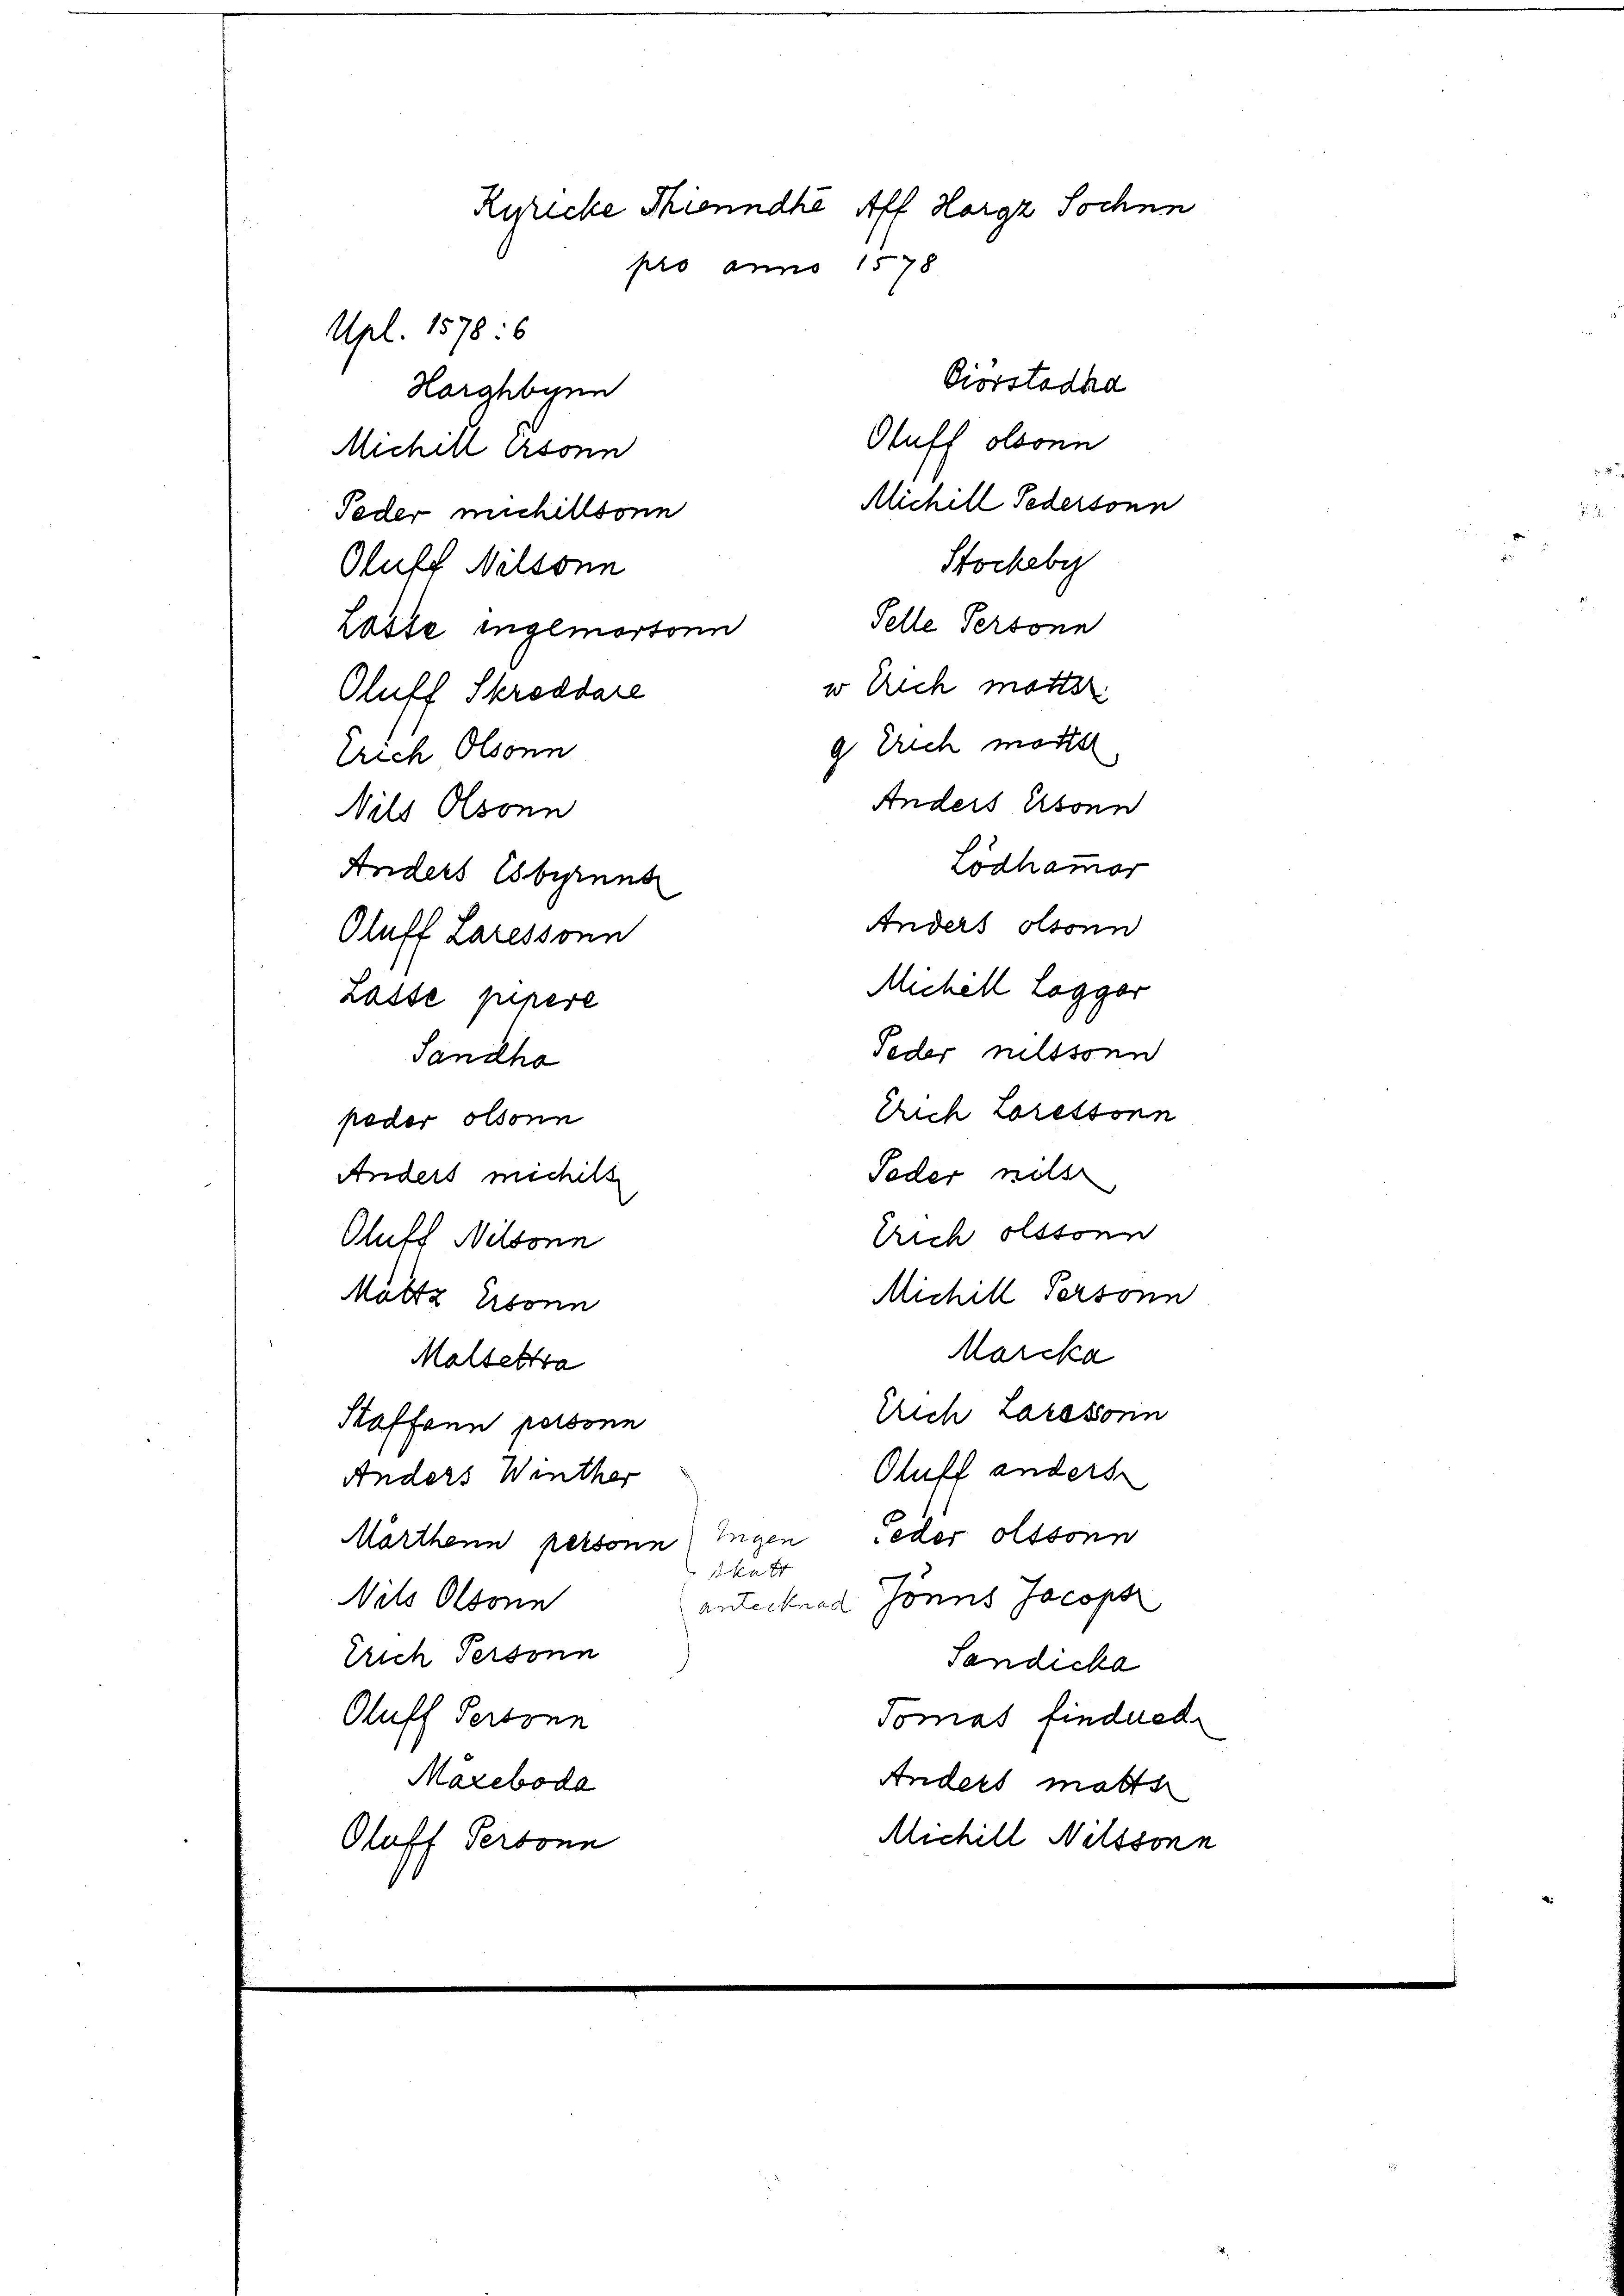 Kyricke Thienndhe Aff Hargz Sochnn
pro anno 1578
Upl. 1578:6
Harghbynn
Michill Ersonn
Peder michillsonn
Oluff Nilsonn
Lasse ingemarsonn
Oluff Skreddare
Erich Olsonn
Nils Olsonn
Anders Esbyrnns
Oluff Laressonn
Lasse pipere
Sandha
peder olsonn
Anders michils
Oluff Nilsonn
Mattz Ersonn
Malsettra
Staffann personn
Anders Winther
Mårthenn personn
Nils Olsonn
Erich Personn
Oluff Personn
Måreboda
Oluff Personn
Ingen
skatt
antecknad
Biörstadha
Oluff olsonn
Michill Pedersonn
Stockeby
Pelle Personn
w Erich matts
g Erich matts
Anders Ersonn
Lödham̄ar
Anders olsonn
Michill Laggar
Peder nilssonn
Erich Laressonn
Peder nils
Erich olssonn
Michill Personn
Marcka
Erich Larssonn
Oluff anders
Peder olssonn
Jönns Jacops
Sandicka
Tomas findued
Anders matts
Michill Nilssonn